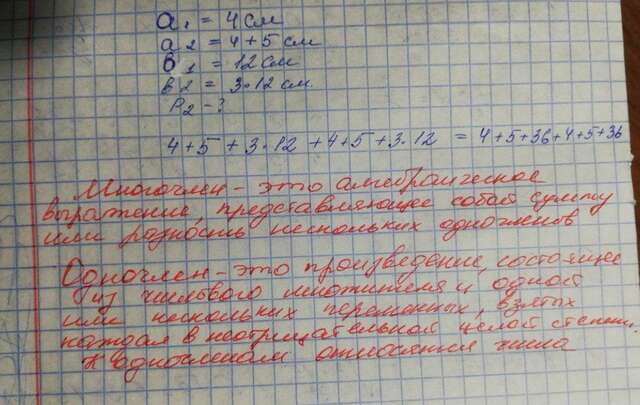 a₁ = 4 см
a₂ = 4 + 5 см
в₁ = 12 см
в₂ = 3·12 см.
P₂ - ?
4 + 5 + 3·12 + 4 + 5 + 3·12 = 4 + 5 + 36 + 4 + 5 + 36
Многочлен - это алгебраическое
выражение, представляющее собой сумму
или разность нескольких одночленов
Одночлен - это произведение, состоящее
из числового множителя и одной
или нескольких переменных, взятых
каждая в неотрицательной целой степени.
К одночленам относятся числа